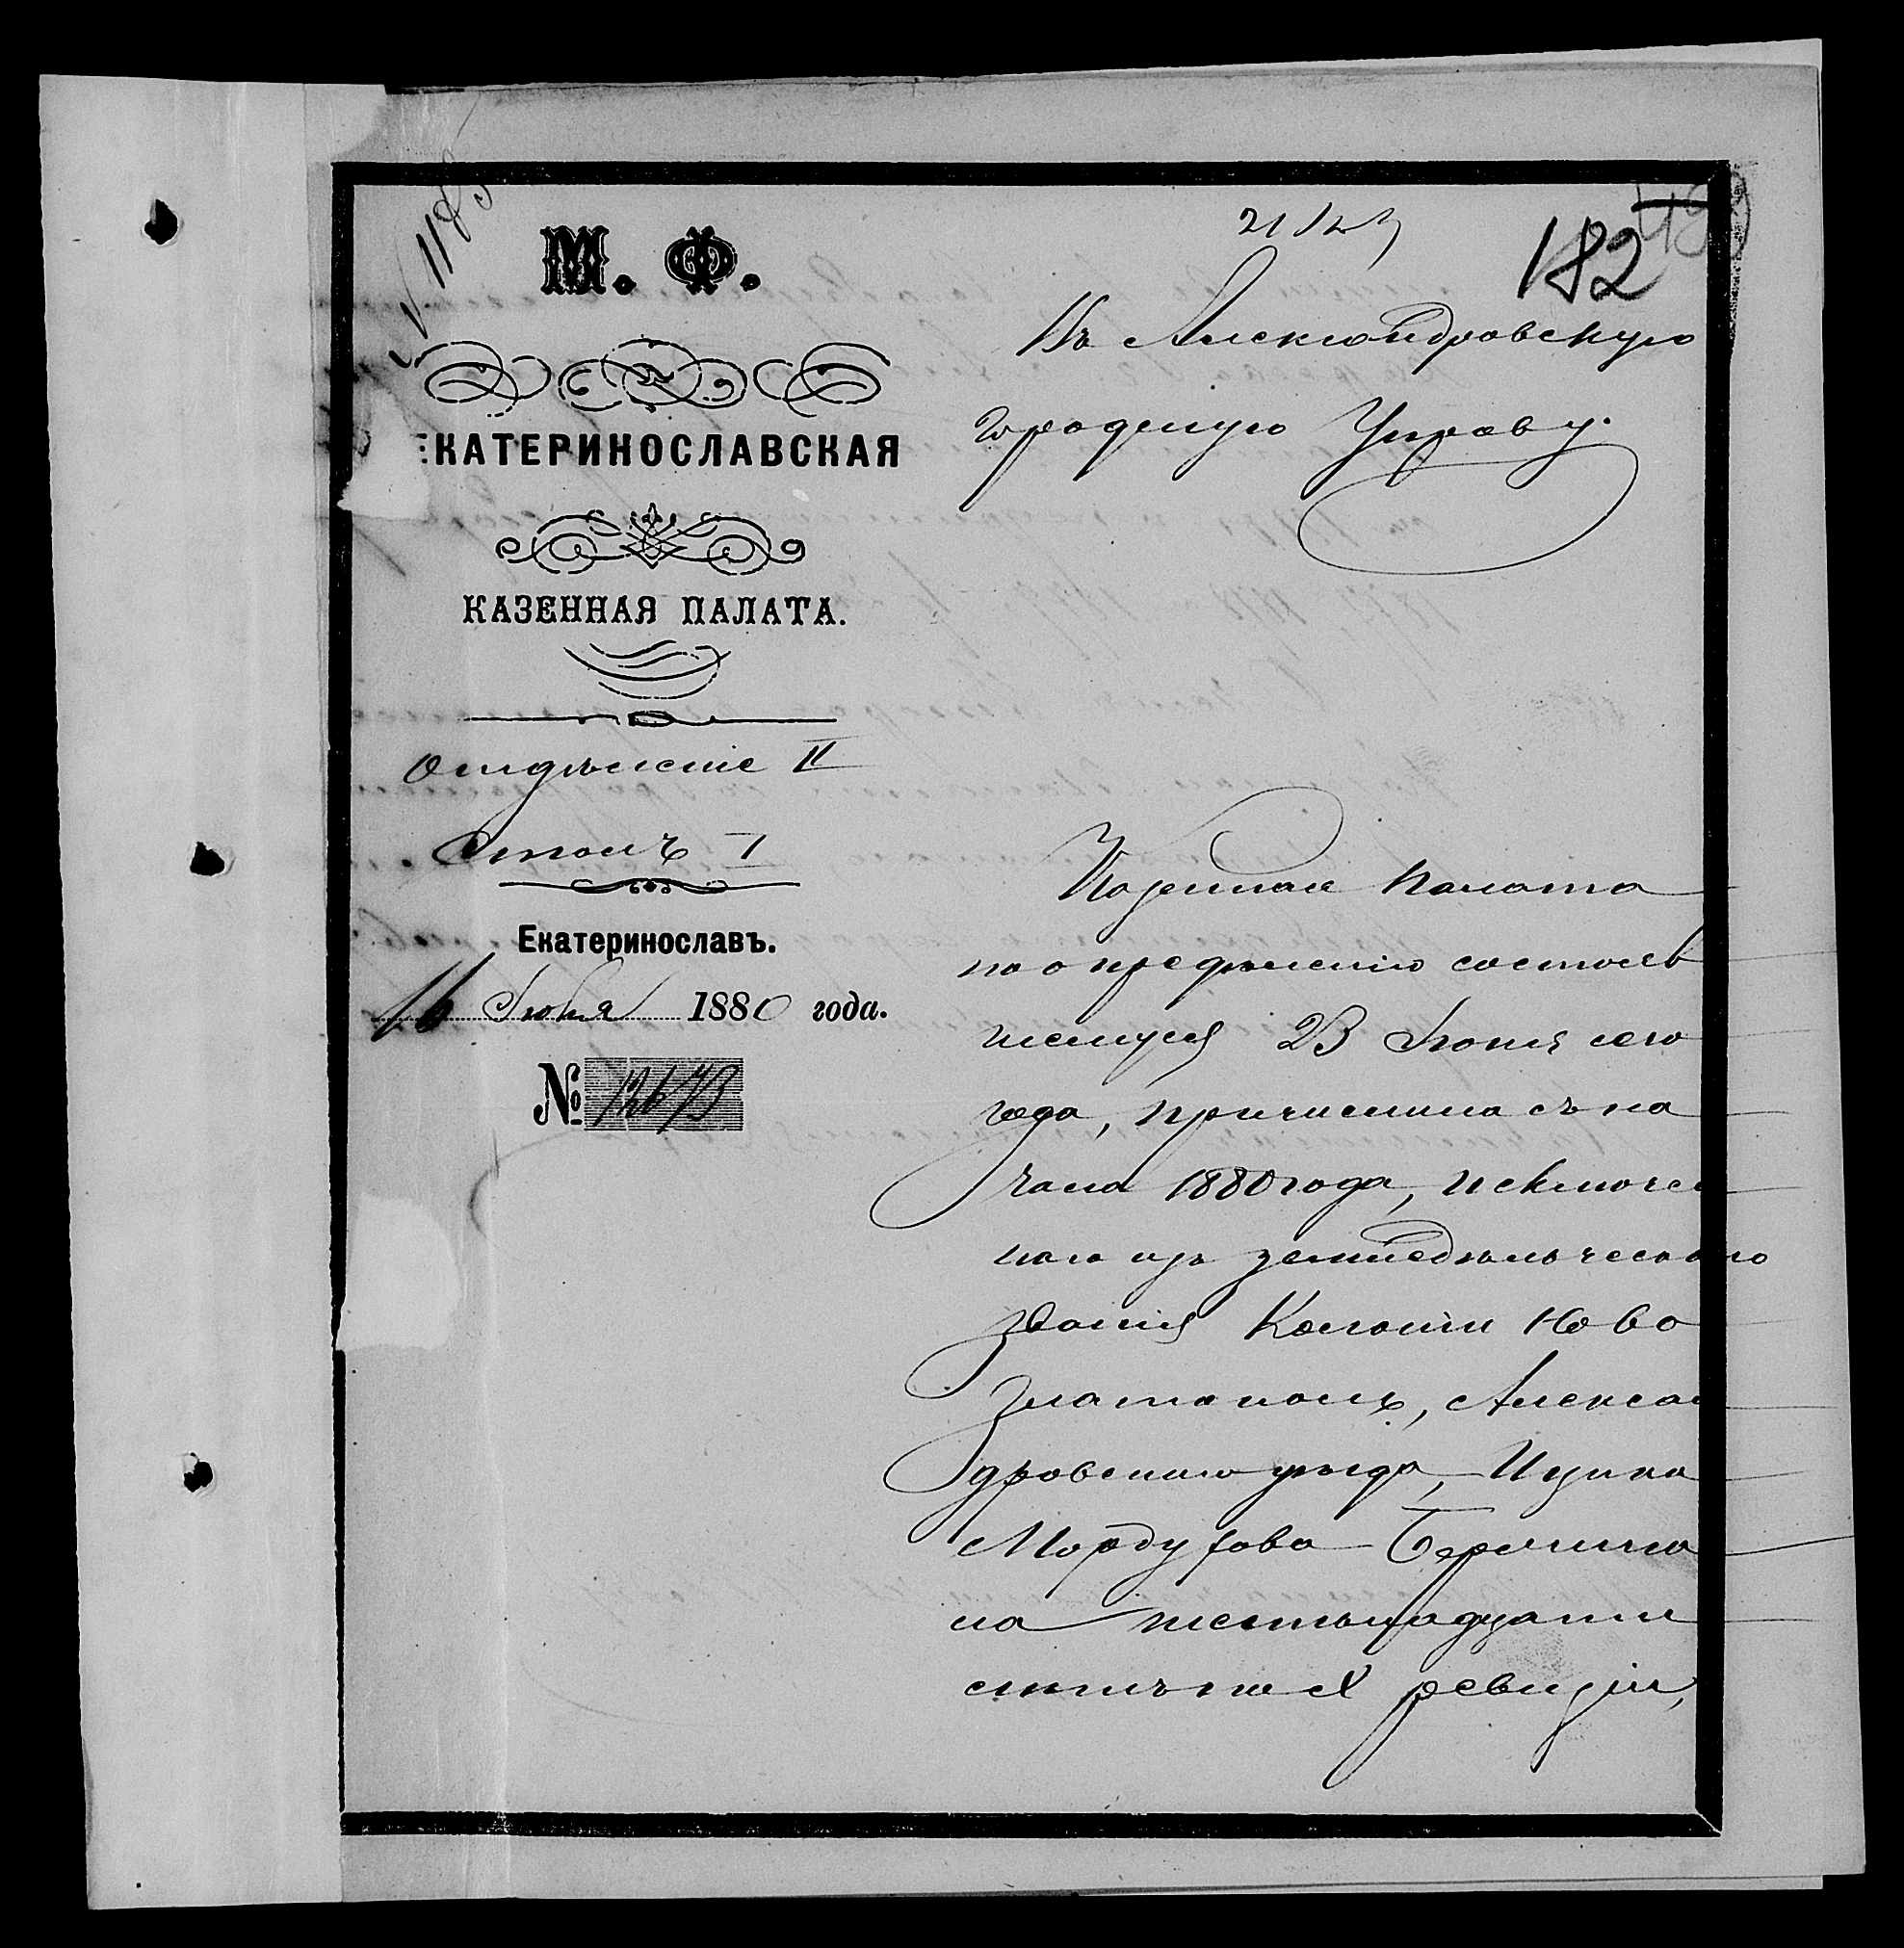 182
М. Ф.
ЕКАТЕРИНОСЛАВСКАЯ
КАЗЕННАЯ ПАЛАТА.
Отдѣленіе II
Столъ I
Екатеринославъ.
16 Іюля 1880 года.
№ 12673
Въ Александровскую
городскую Управу.
Казенная Палата
по опредѣленію состояв
шемуся 23 Іюня сего
года, причислила съ на
чала 1880 года, исключен
наго изъ земледѣльческаго
званія Колоніи Ново
златополь, Александровскаго уѣзда, Ицика
Мордухова
на
X ревизіи,